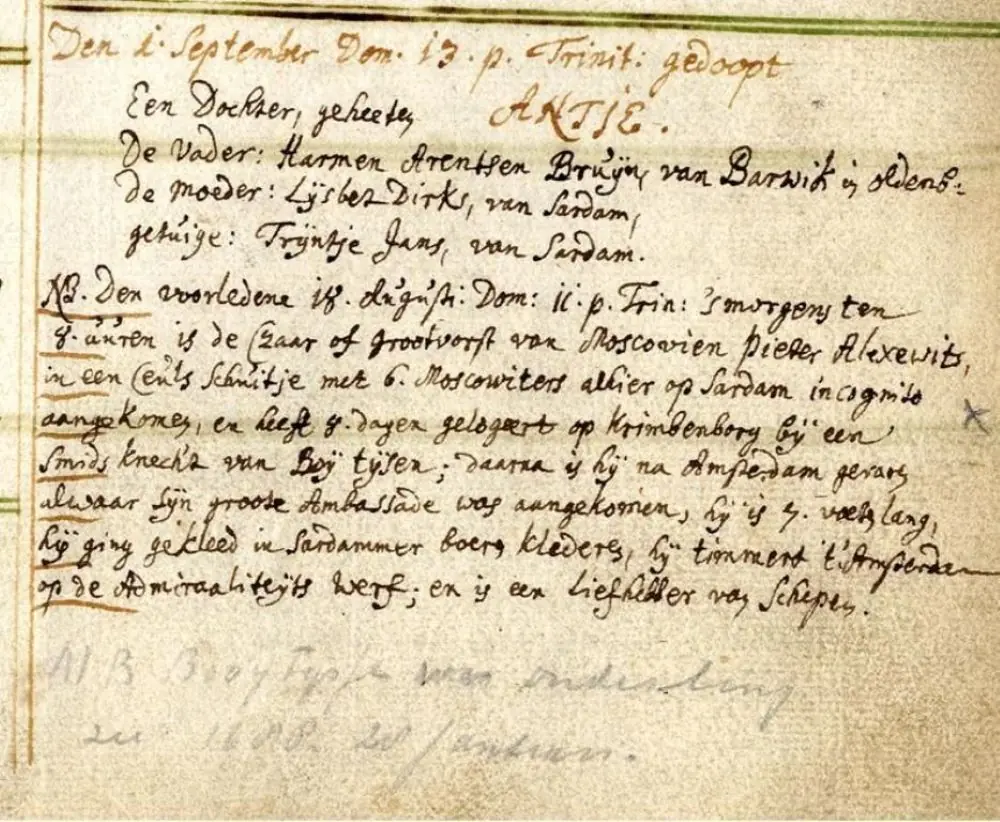 Den 1. September Dom. 13. p. Trinit: gedoopt
Een Dochter, geheeten ANTJE.
De Vader: Harmen Arentsen Bruijn, van Barwik in oldenb:
de Moeder: Lijsbet Dirks, van Sardam,
getuige: Trijntje Jans, van Sardam.
NB. Den voorledene 18. Augusti: Dom: 11. p. Trin: 's morgens ten
8. uuren is de Czaar of Grootvorst van Moscovien Pieter Alexewits,
in een schuitje met 6. Moscowiters alhier op Sardam incognito
aangekomen, en heeft 8. dagen gelogeert op Krimbenborg bij een
Smids knecht van Boij tijsen; daarna is hij na Amsterdam
alwaar sijn groote Ambassade was aangekomen, hij is 7. voeten lang,
hij ging gekleed in Sardammer boeren klederen, hij timmert t'Amsterdam
op de Admiraaliteijts werf; en is een liefhebber van Schepen.
NB was ouderling
1688. 28